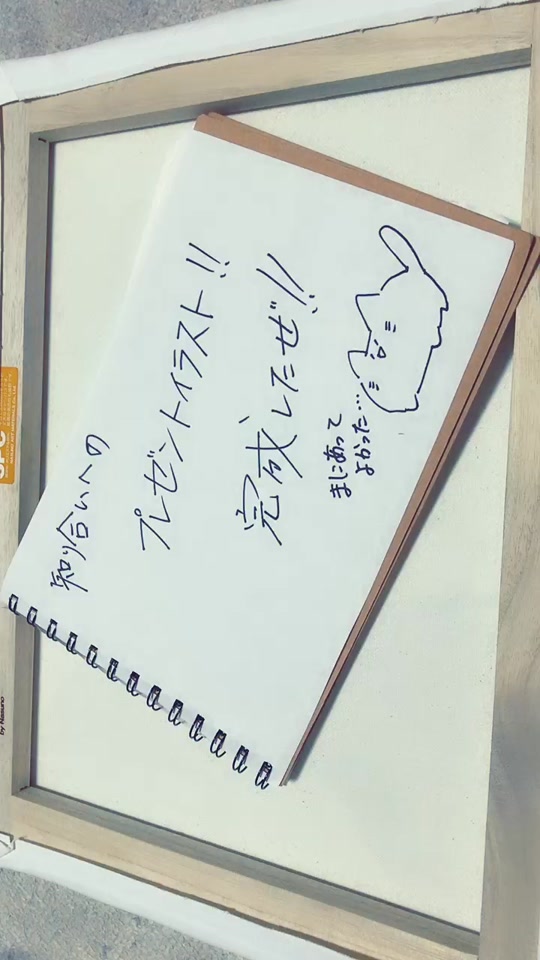 知り合いへの
プレゼントイラスト!!
完成したぜ!!
まにあって
よかった…
SPC
by Nasuno